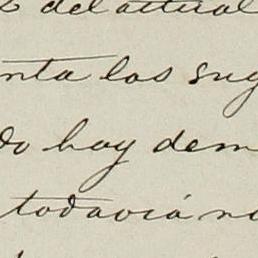 del actual
nta los sug
do hay dem
todavía no